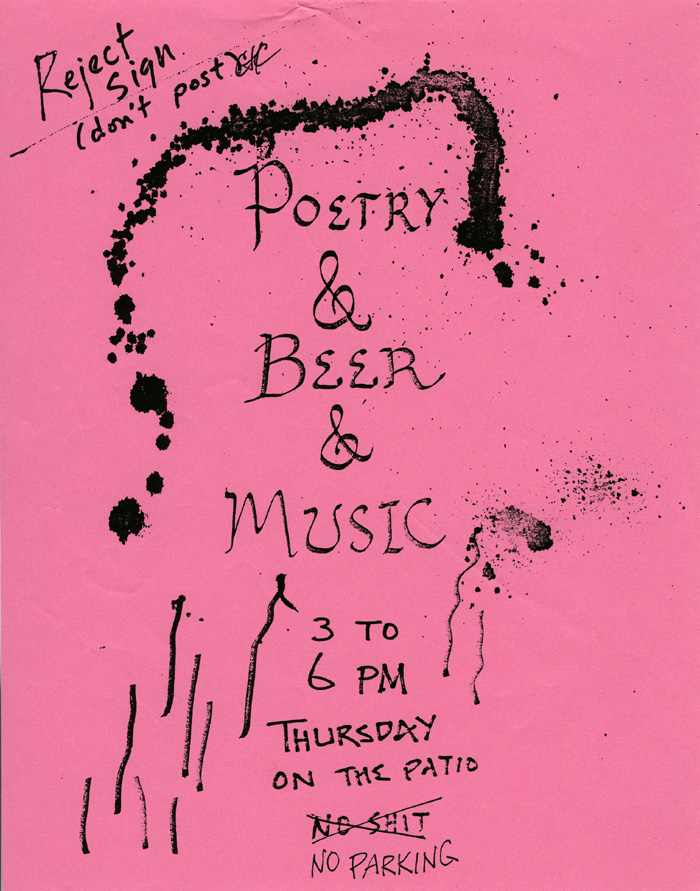 Reject
Sign
(don't post
POETRY
&
BEER
&
MUSIC
3 TO
6 PM
THURSDAY
ON THE PATIO
NO SHIT
NO PARKING